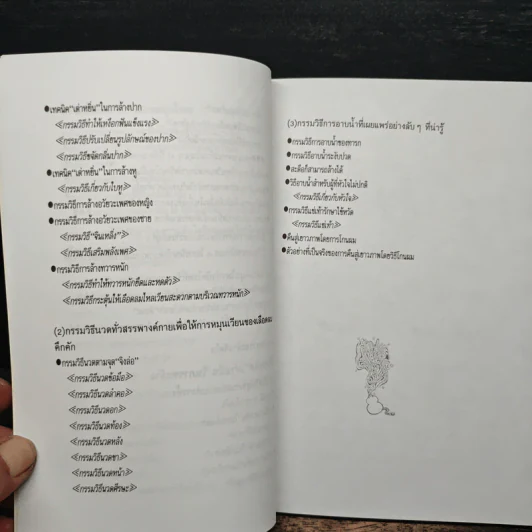 ●เทคนิค"เต๋าหยิ่น"ในการล้างปาก
≪กรรมวิธีทำให้เหงือกฟันแข็งแรง≫
≪กรรมวิธีปรับเปลี่ยนรูปลักษณ์ของปาก≫
≪กรรมวิธีขจัดกลิ่นปาก≫
●เทคนิค"เต๋าหยิ่น"ในการล้างหู
≪กรรมวิธีเกี่ยวกับใบหู≫
●กรรมวิธีการล้างอวัยวะเพศของหญิง
●กรรมวิธีการล้างอวัยวะเพศของชาย
≪กรรมวิธี"จินเหลิ่ง"≫
≪กรรมวิธีเสริมพลังเพศ≫
●กรรมวิธีการล้างทวารหนัก
≪กรรมวิธีทำให้ทวารหนักยืดและหดตัว≫
≪กรรมวิธีกระตุ้นให้เลือดลมไหลเวียนสะดวกตามบริเวณทวารหนัก≫
(2)กรรมวิธีนวดทั่วสรรพางค์กายเพื่อให้การหมุนเวียนของเลือดลม
คึกคัก
●กรรมวิธีนวดตามจุด"จิงล่อ"
≪กรรมวิธีนวดข้อมือ≫
≪กรรมวิธีนวดลำคอ≫
≪กรรมวิธีนวดอก≫
≪กรรมวิธีนวดท้อง≫
≪กรรมวิธีนวดหลัง
≪กรรมวิธีนวดขา≫
≪กรรมวิธีนวดหน้า≫
≪กรรมวิธีนวดศีรษะ≫
(3)กรรมวิธีการอาบน้ำที่เผยแพร่อย่างลับ ๆ ที่น่ารู้
●กรรมวิธีการอาบน้ำของทารก
●กรรมวิธีการอาบน้ำระงับปวด
●สะดือก็สามารถล้างได้
●วิธีอาบน้ำสำหรับผู้ที่หัวใจไม่ปกติ
≪กรรมวิธีเกี่ยวกับหัวใจ≫
●กรรมวิธีแช่เท้ารักษาไข้หวัด
≪กรรมวิธีแช่เท้า≫
●คืนสู่เยาวภาพโดยการโกนผม
●ตัวอย่างที่เป็นจริงของการคืนสู่เยาวภาพโดยวิธีโกนผม